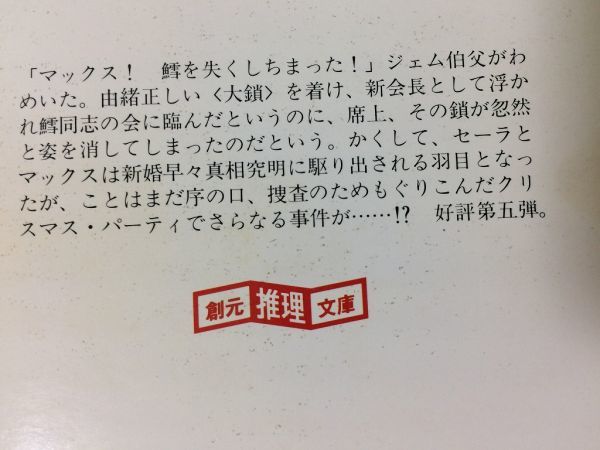 「マックス!　鱈を失くしちまった!」ジェム伯父がわ
めいた。由緒正しい〈大鎖〉を着け、新会長として浮か
れ鱈同志の会に臨んだというのに、席上、その鎖が忽然
と姿を消してしまったのだという。かくして、セーラと
マックスは新婚早々真相究明に駆り出される羽目となっ
たが、ことはまだ序の口、捜査のためもぐりこんだクリ
スマス・パーティでさらなる事件が……!?　好評第五弾。
創元推理文庫